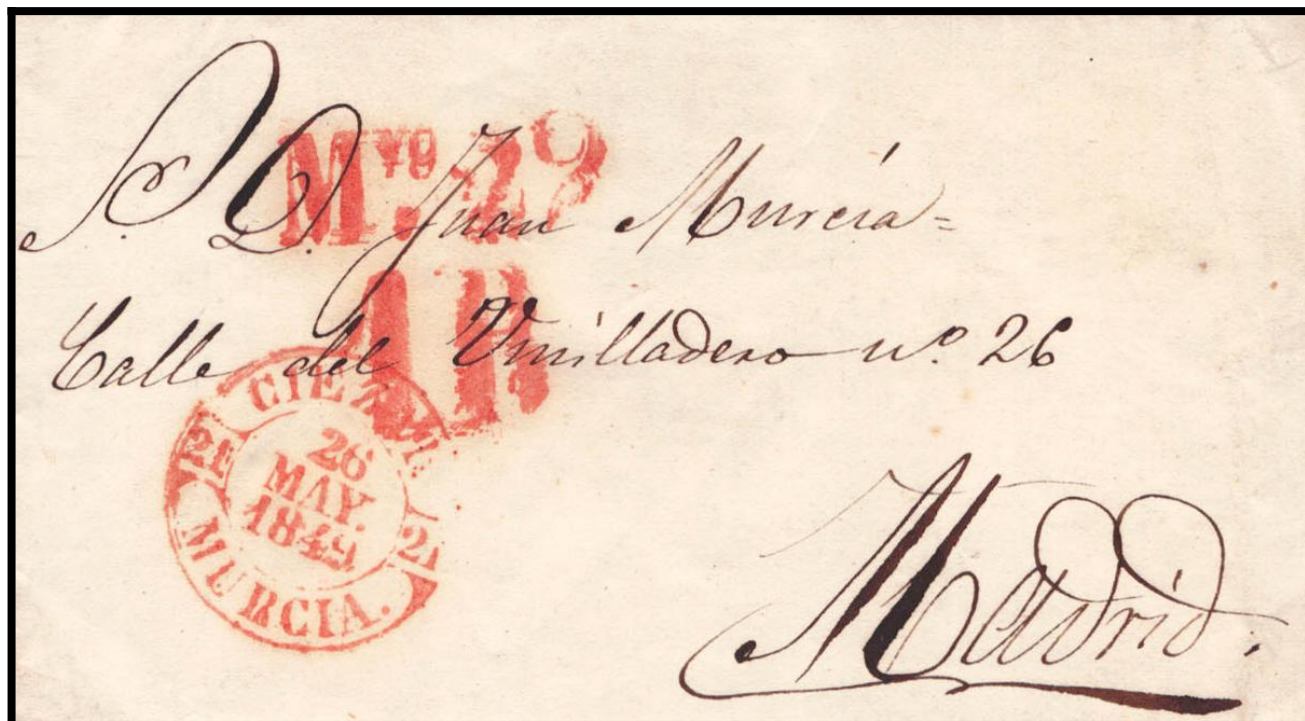 Sr. D. Juan Murcia=
Calle del Vinilladero nº 26
Madrid.
Myo. 29
AR
CIEZA.
26
MAY.
1849
21
21
MURCIA.